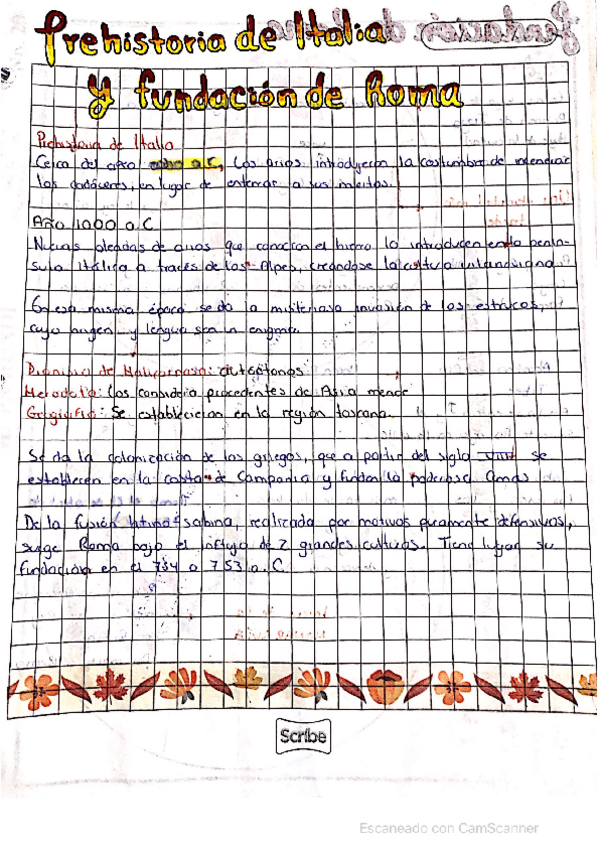 Prehistoria de Italia
y fundación de Roma
Prehistoria de Italia
Cerca del año a.C, Los arios introdujeron la costumbre de incendiar
los cadáveres, en lugar de enterrar a sus muertos.
Año 1000 a.C
Nuevas oleadas de arios que conocían el hierro lo introducen en la penín-
sula itálica a través de los Alpes, creándose la cultura
En esa misma época se da la misteriosa invasión de los etruscos,
cuyo origen y lengua son un enigma.
Dionisio de Halicarnaso: autóctonos
Herodoto: Los considera procedentes de Asia menor
Geografía: Se establecieron en la región toscana.
Se da la colonización de los griegos, que a partir del siglo VIII se
establecen en la costa de Campania y fundan la poderosa
De la fusión latina sabina, realizada por motivos puramente defensivos,
surge Roma bajo el influjo de 2 grandes culturas. Tiene lugar su
fundación en el 754 o 753 a.C
Scribe
Escaneado con CamScanner